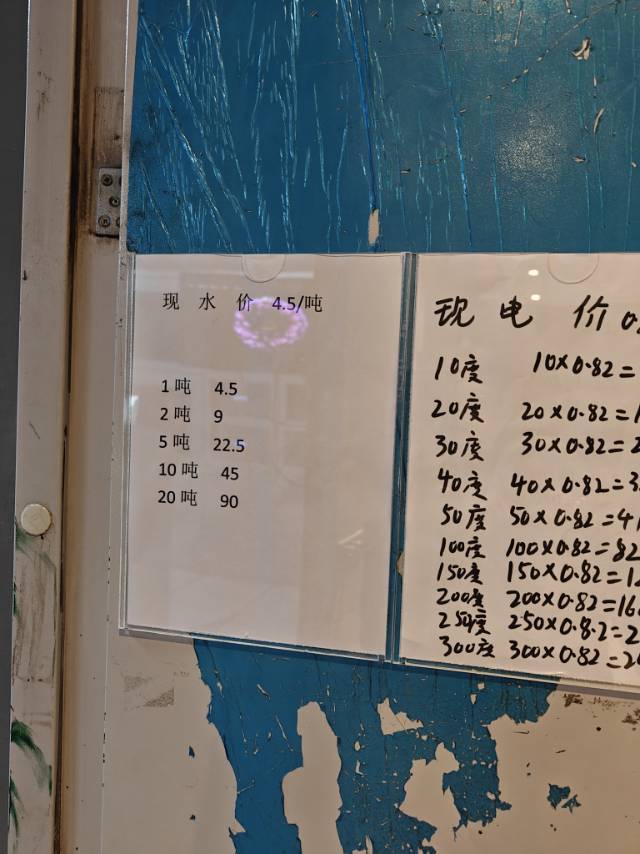 现 水 价 4.5/吨
1 吨 4.5
2 吨 9
5 吨 22.5
10 吨 45
20 吨 90
现 电 价
10度 10×0.82=
20度 20×0.82=1
30度 30×0.82=2
40度 40×0.82=3
50度 50×0.82=41
100度 100×0.82=82
150度 150×0.82=12
200度 200×0.82=16
250度 250×0.82=2
300度 300×0.82=2